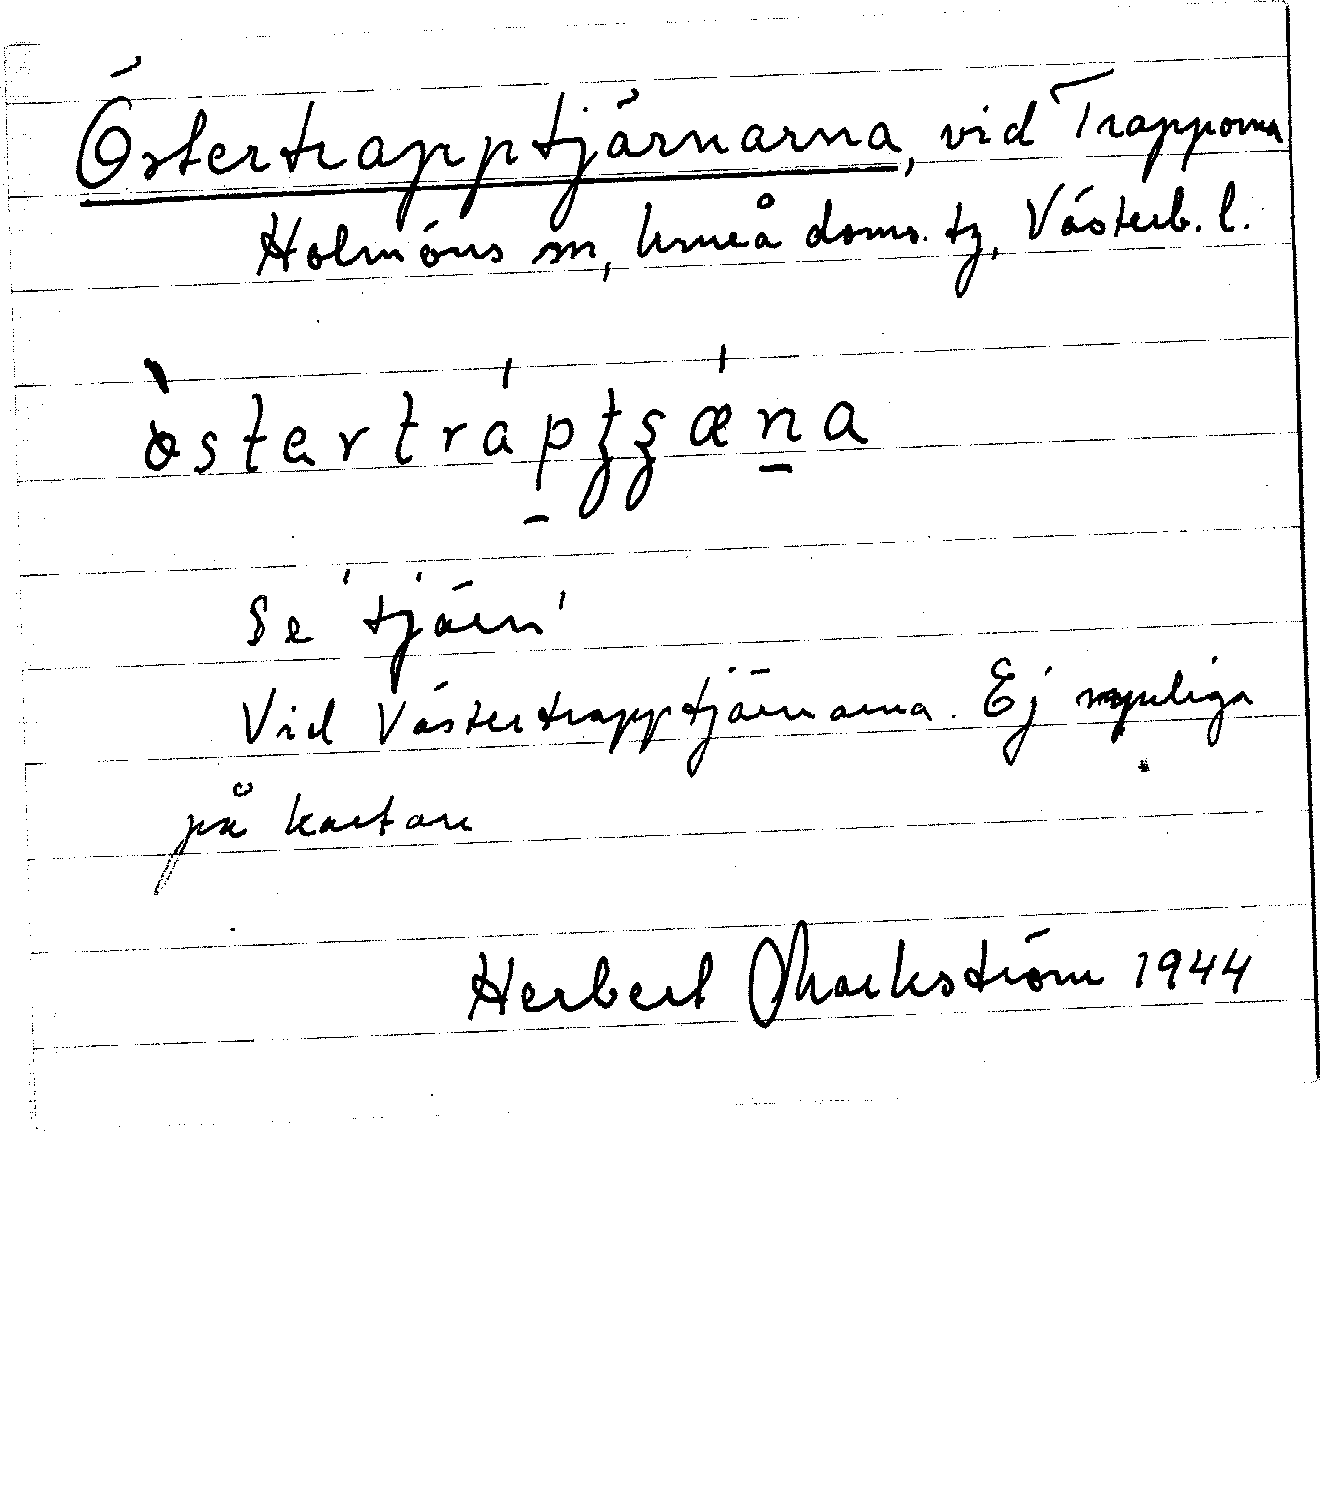 Östertrapptjärnarna, vid Trapporna
Holmöns sn, Umeå doms. tg, Västerb. l.
òstertrápţşæ̍n̠a
Se 'tjärn'
Vid Västertrapptjärnarna. Ej synliga
på kartan
Herbert Markström 1944